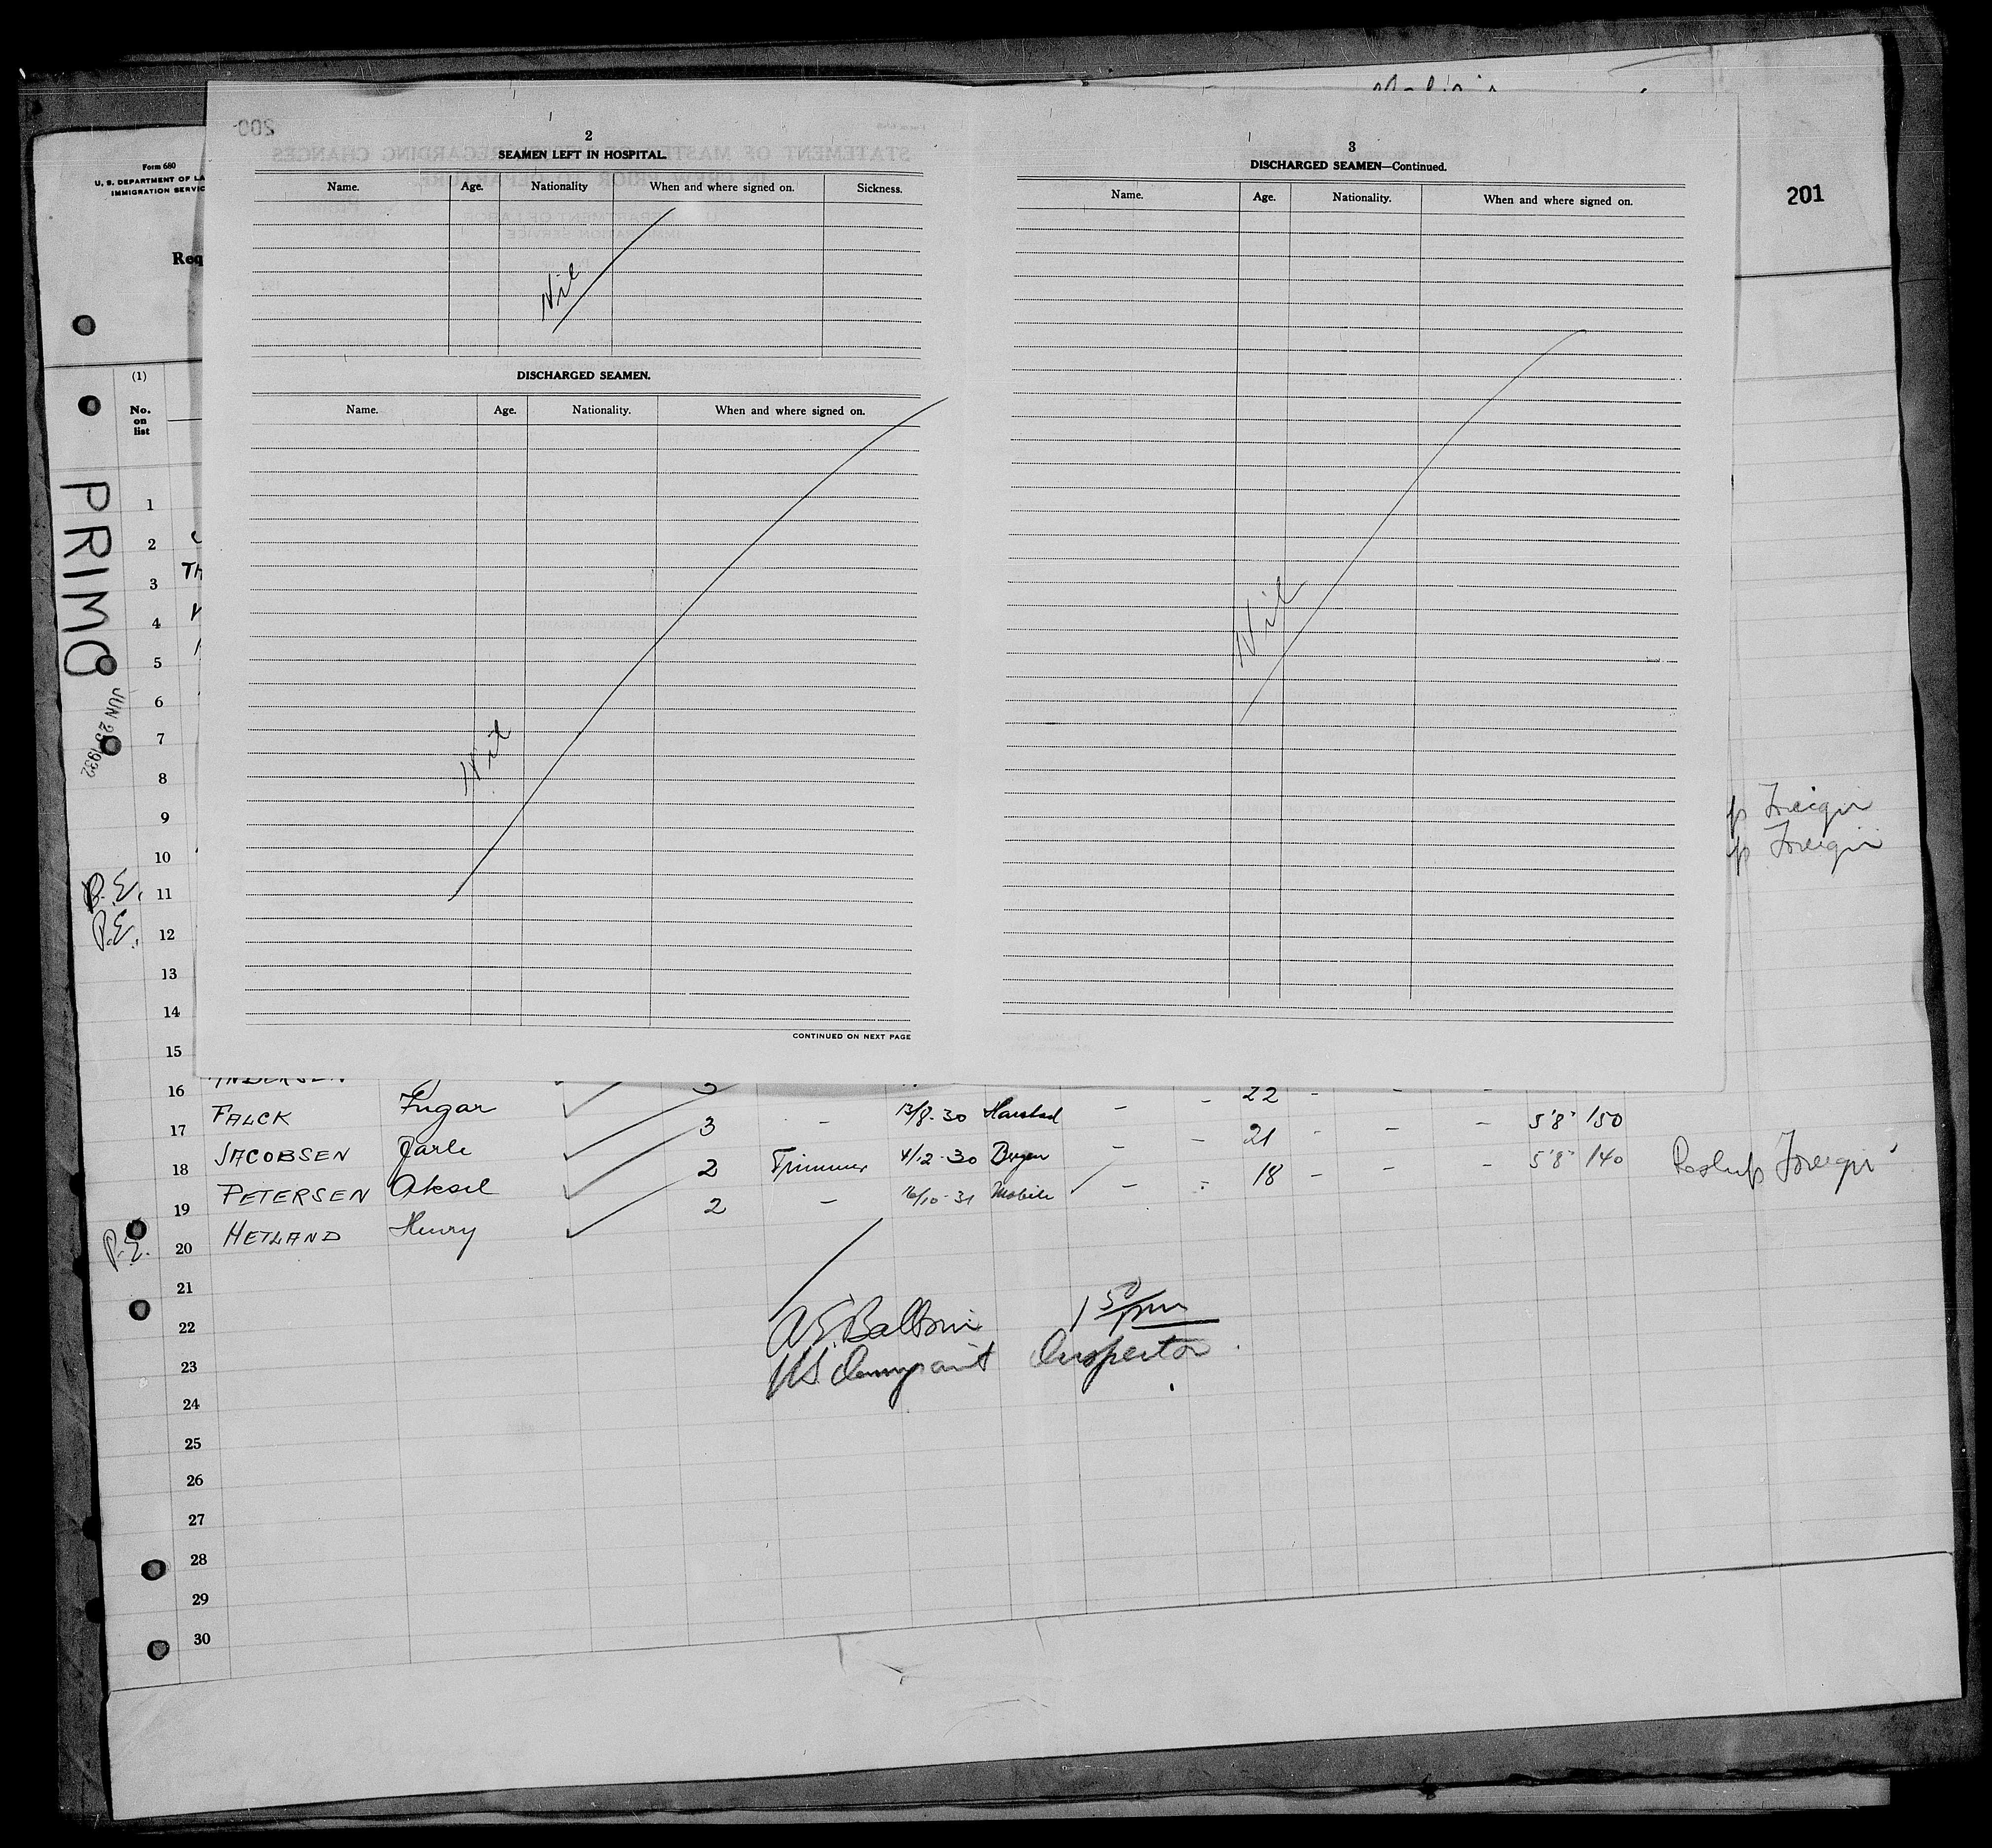 201
Form 680
U. S. DEPARTMENT OF LA
IMMIGRATION SERVIC
Req
(1)
No.
on
list
PRIMO
JUN 25 1932
200
2
SEAMEN LEFT IN HOSPITAL.
Name. Age. Nationality When and where signed on. Sickness.
Nil
DISCHARGED SEAMEN.
Name. Age. Nationality. When and where signed on.
Nil
CONTINUED ON NEXT PAGE
3
DISCHARGED SEAMEN—Continued.
Name. Age. Nationality. When and where signed on.
Nil
1
2
3 TH
4
5
6
7
8
9
10
P.E. 11
P.E. 12
13
14
15
Foreign
Foreign
16 ANDERSEN 3 22
17 FALCK Ingar 3 - 13/8-30 Harstad - - 21 - - - 5'8" 150
18 JACOBSEN Jarle 2 Trimmer 4/12-30 Bergen - - 18 - - - 5'8" 140
19 PETERSEN Aksel 2 - 16/10-31 Mobile
P.E. 20 HETLAND Henry Foreign
21
22
23
24
25
26
27
28
29
30
1 50 pm
U.S. Immigrant Inspector